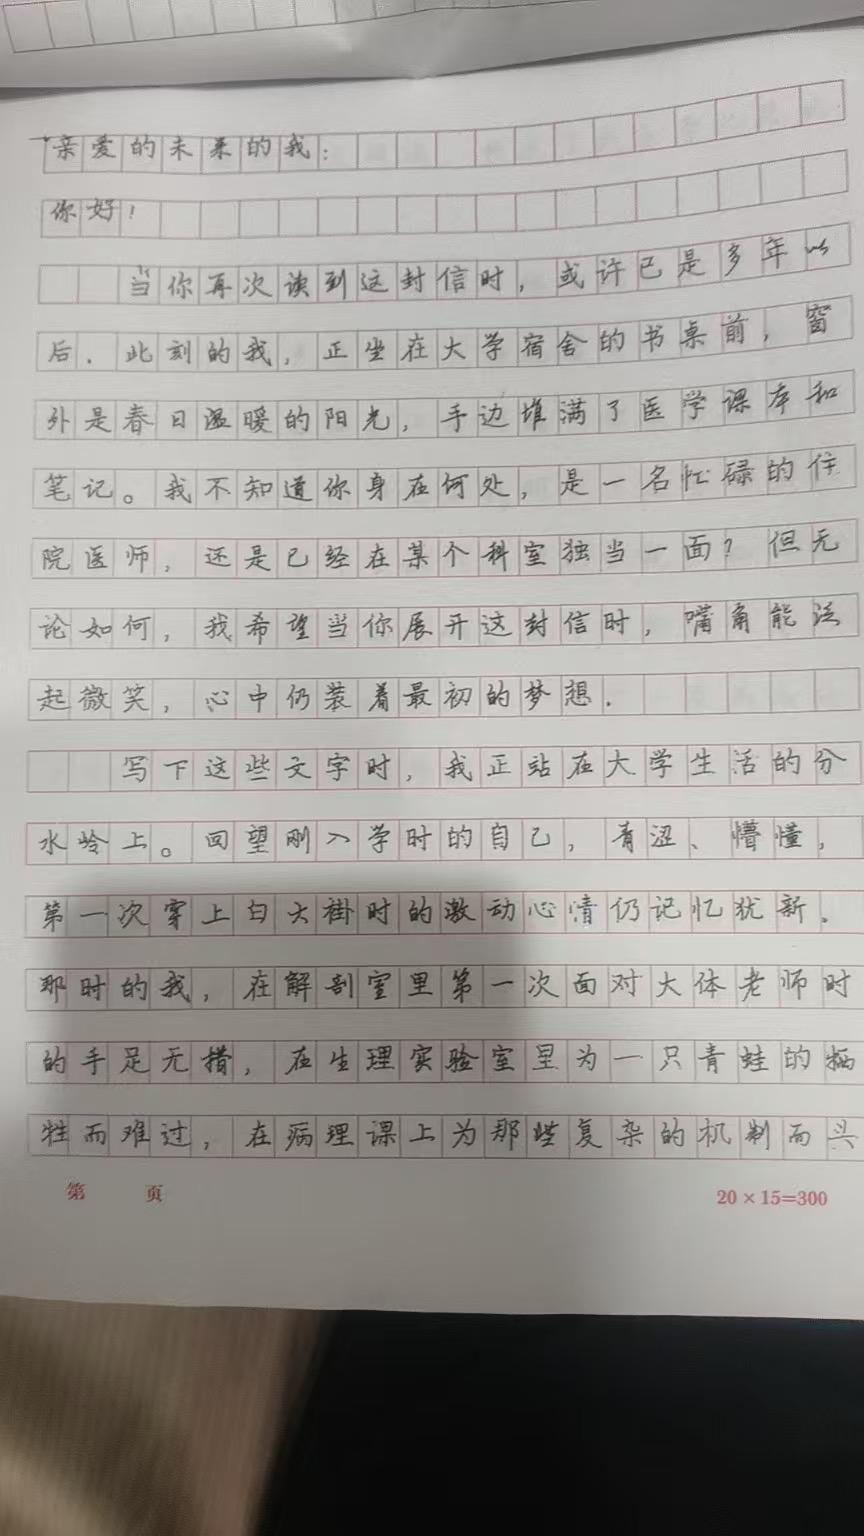 亲爱的未来的我：
你好！
当你再次读到这封信时，或许已是多年以
后．此刻的我，正坐在大学宿舍的书桌前，窗
外是春日温暖的阳光，手边堆满了医学课本和
笔记。我不知道你身在何处，是一名忙碌的住
院医师，还是已经在某个科室独当一面？但无
论如何，我希望当你展开这封信时，嘴角能泛
起微笑，心中仍装着最初的梦想．
写下这些文字时，我正站在大学生活的分
水岭上。回望刚入学时的自己，青涩、懵懂，
第一次穿上白大褂时的激动心情仍记忆犹新．
那时的我，在解剖室里第一次面对大体老师时
的手足无措，在生理实验室里为一只青蛙的牺
牲而难过，在病理课上为那些复杂的机制而兴
第 页
20×15=300